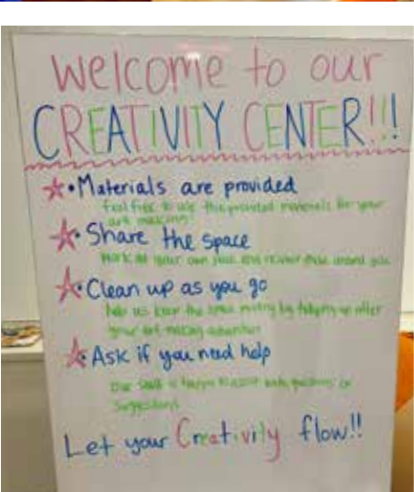 Welcome to our
CREATIVITY CENTER!!!
• Materials are provided
feel free to use the provided materials for your
art making!
• Share the space
Work at your own pace and around you
• Clean up as you go
help us keep the space by tidying up after
your art-making adventure
• Ask if you need help
Our staff is happy to assist with questions or
suggestions
Let your Creativity flow!!